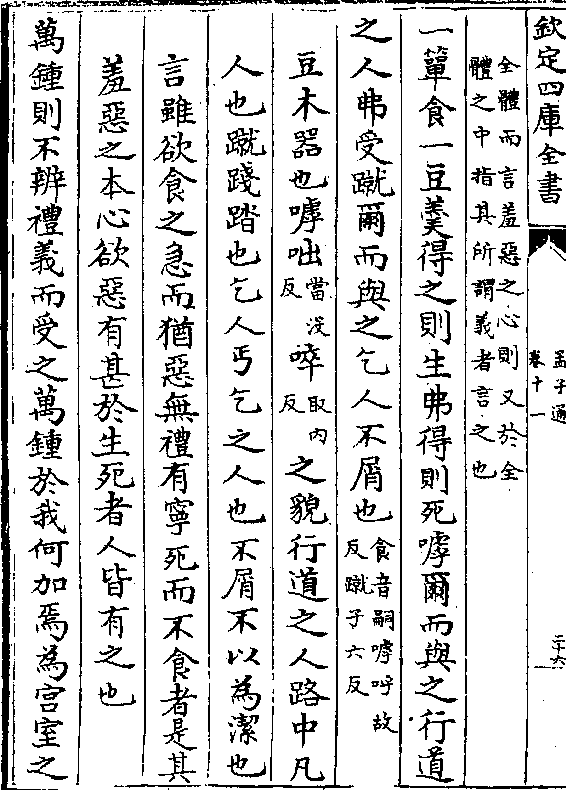 欽定四庫全書
孟子通
卷十一
二十六
全體而言羞惡之心則又於全
體之中指其所謂義者言之也
一簞食一豆羹得之則生弗得則死嘑爾而與之行道
之人弗受蹴爾而與之乞人不屑也食音嗣嘑呼故反蹴子六反
豆木器也嘑咄當没反啐取内反之貌行道之人路中凡
人也蹴踐踏也乞人丐乞之人也不屑不以為潔也
言雖欲食之急而猶惡無禮有寧死而不食者是其
羞惡之本心欲惡有甚於生死者人皆有之也
萬鍾則不辨禮義而受之萬鍾於我何加焉為宫室之